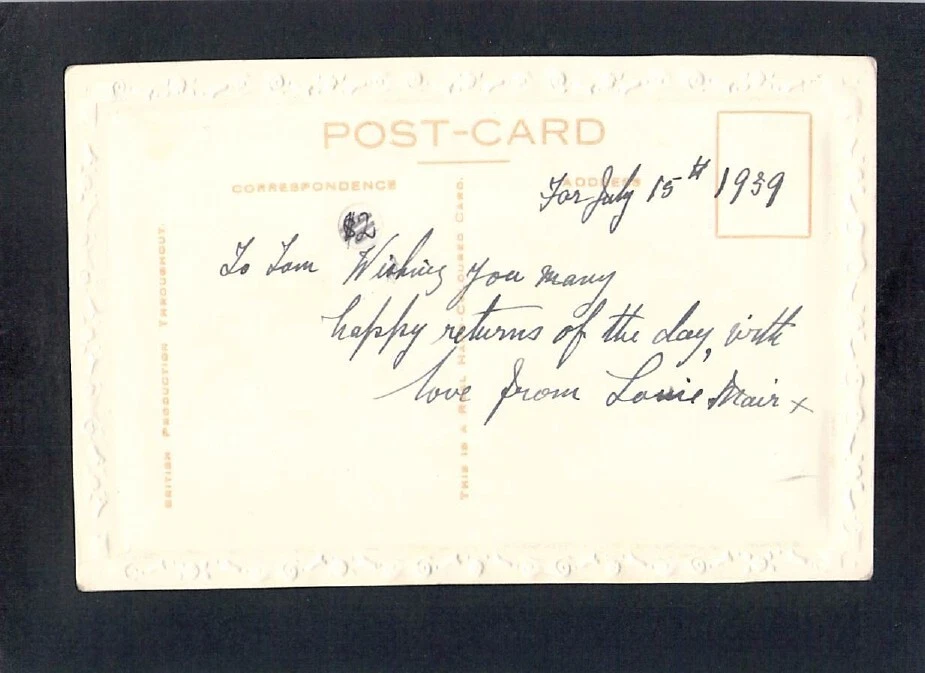 POST-CARD
CORRESPONDENCE
ADDRESS
For July 15th 1939
$2
To Tom Wishing you many
happy returns of the day, with
love from Louie Mair x
BRITISH PRODUCTION THROUGHOUT.
THIS IS A REAL HAND-COLOURED CARD.